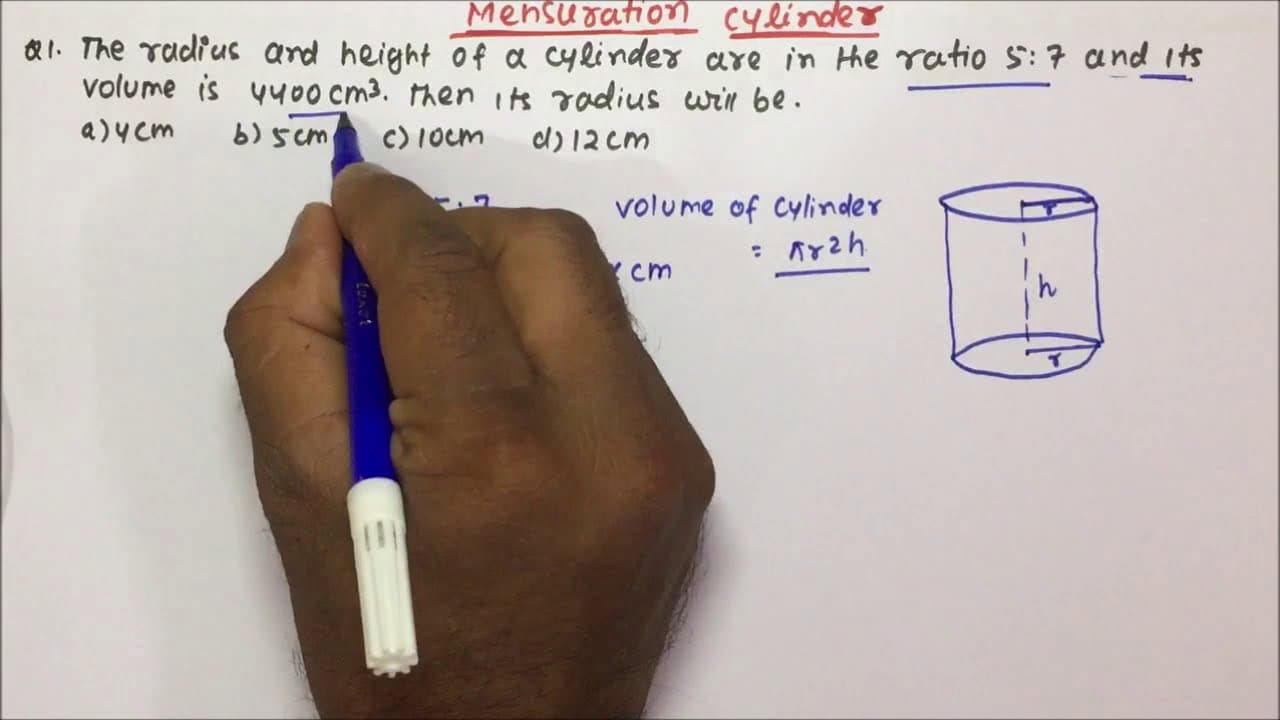 Mensuration cylinder
Q1. The radius and height of a cylinder are in the ratio 5:7 and its
volume is 4400cm³. Then its radius will be.
a) 4cm b) 5cm c) 10cm d) 12cm
5:7 volume of cylinder
= πr2h
cm
r
h
r